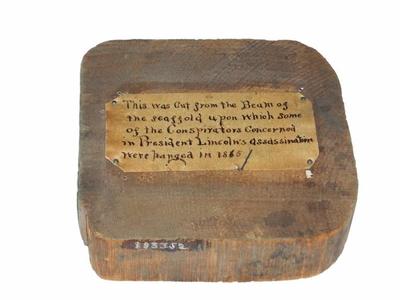 This was Cut from the Beam of
the scaffold upon which some
of the Conspirators Concerned
in President Lincoln's assassination
were hanged in 1865